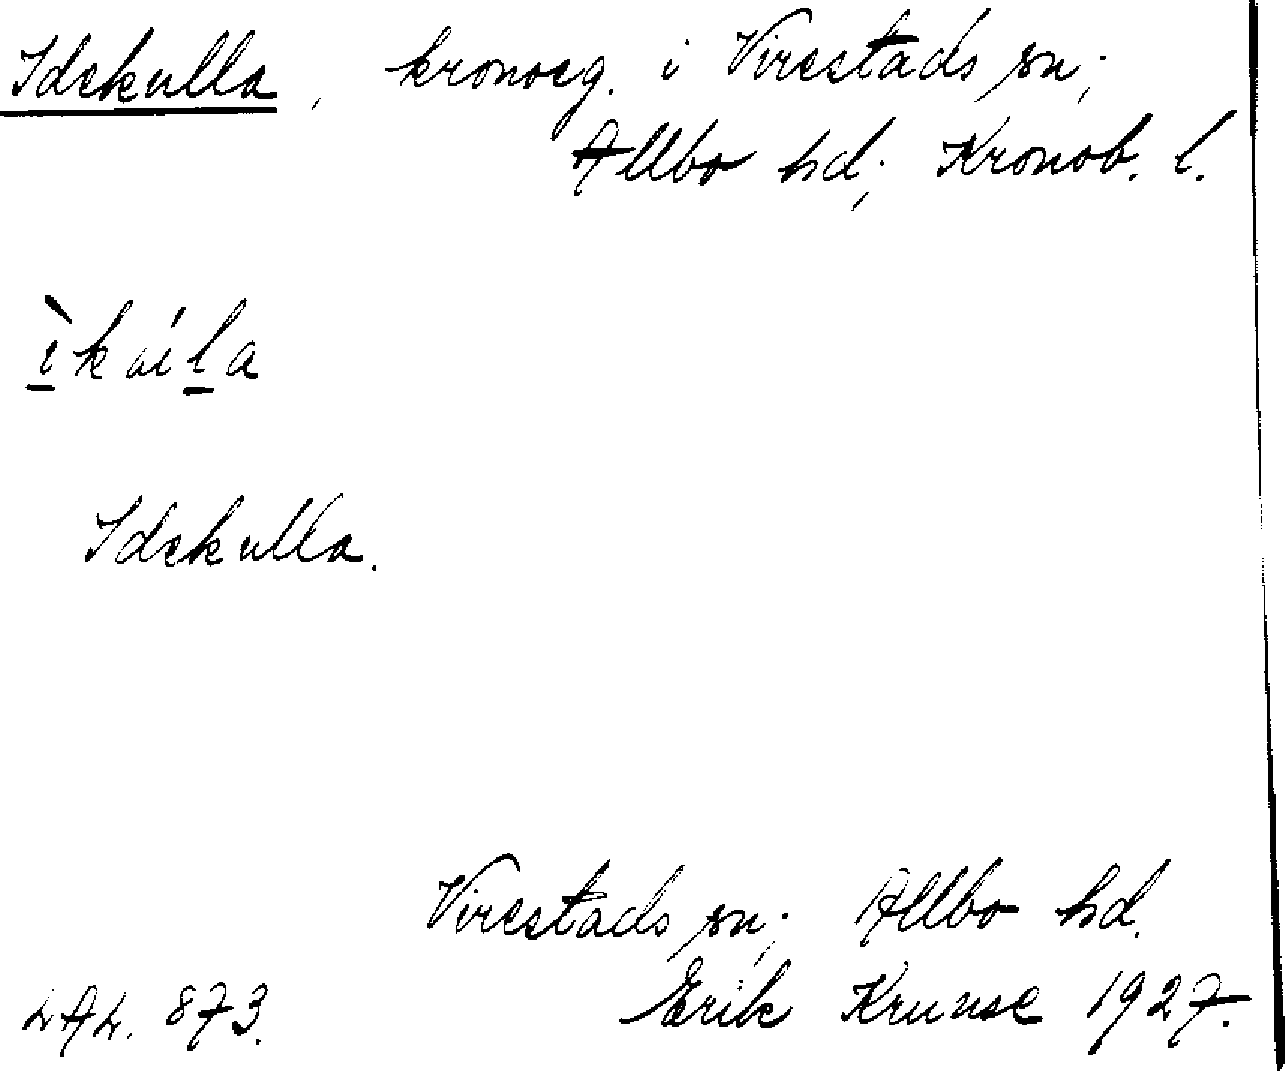 Idekulla, kronoeg. i Virestads sn;
Allbo hd; Kronob. l.
Idekulla.
Virestads sn; Allbo hd.
LAL. 873. Erik Krunse 1927.